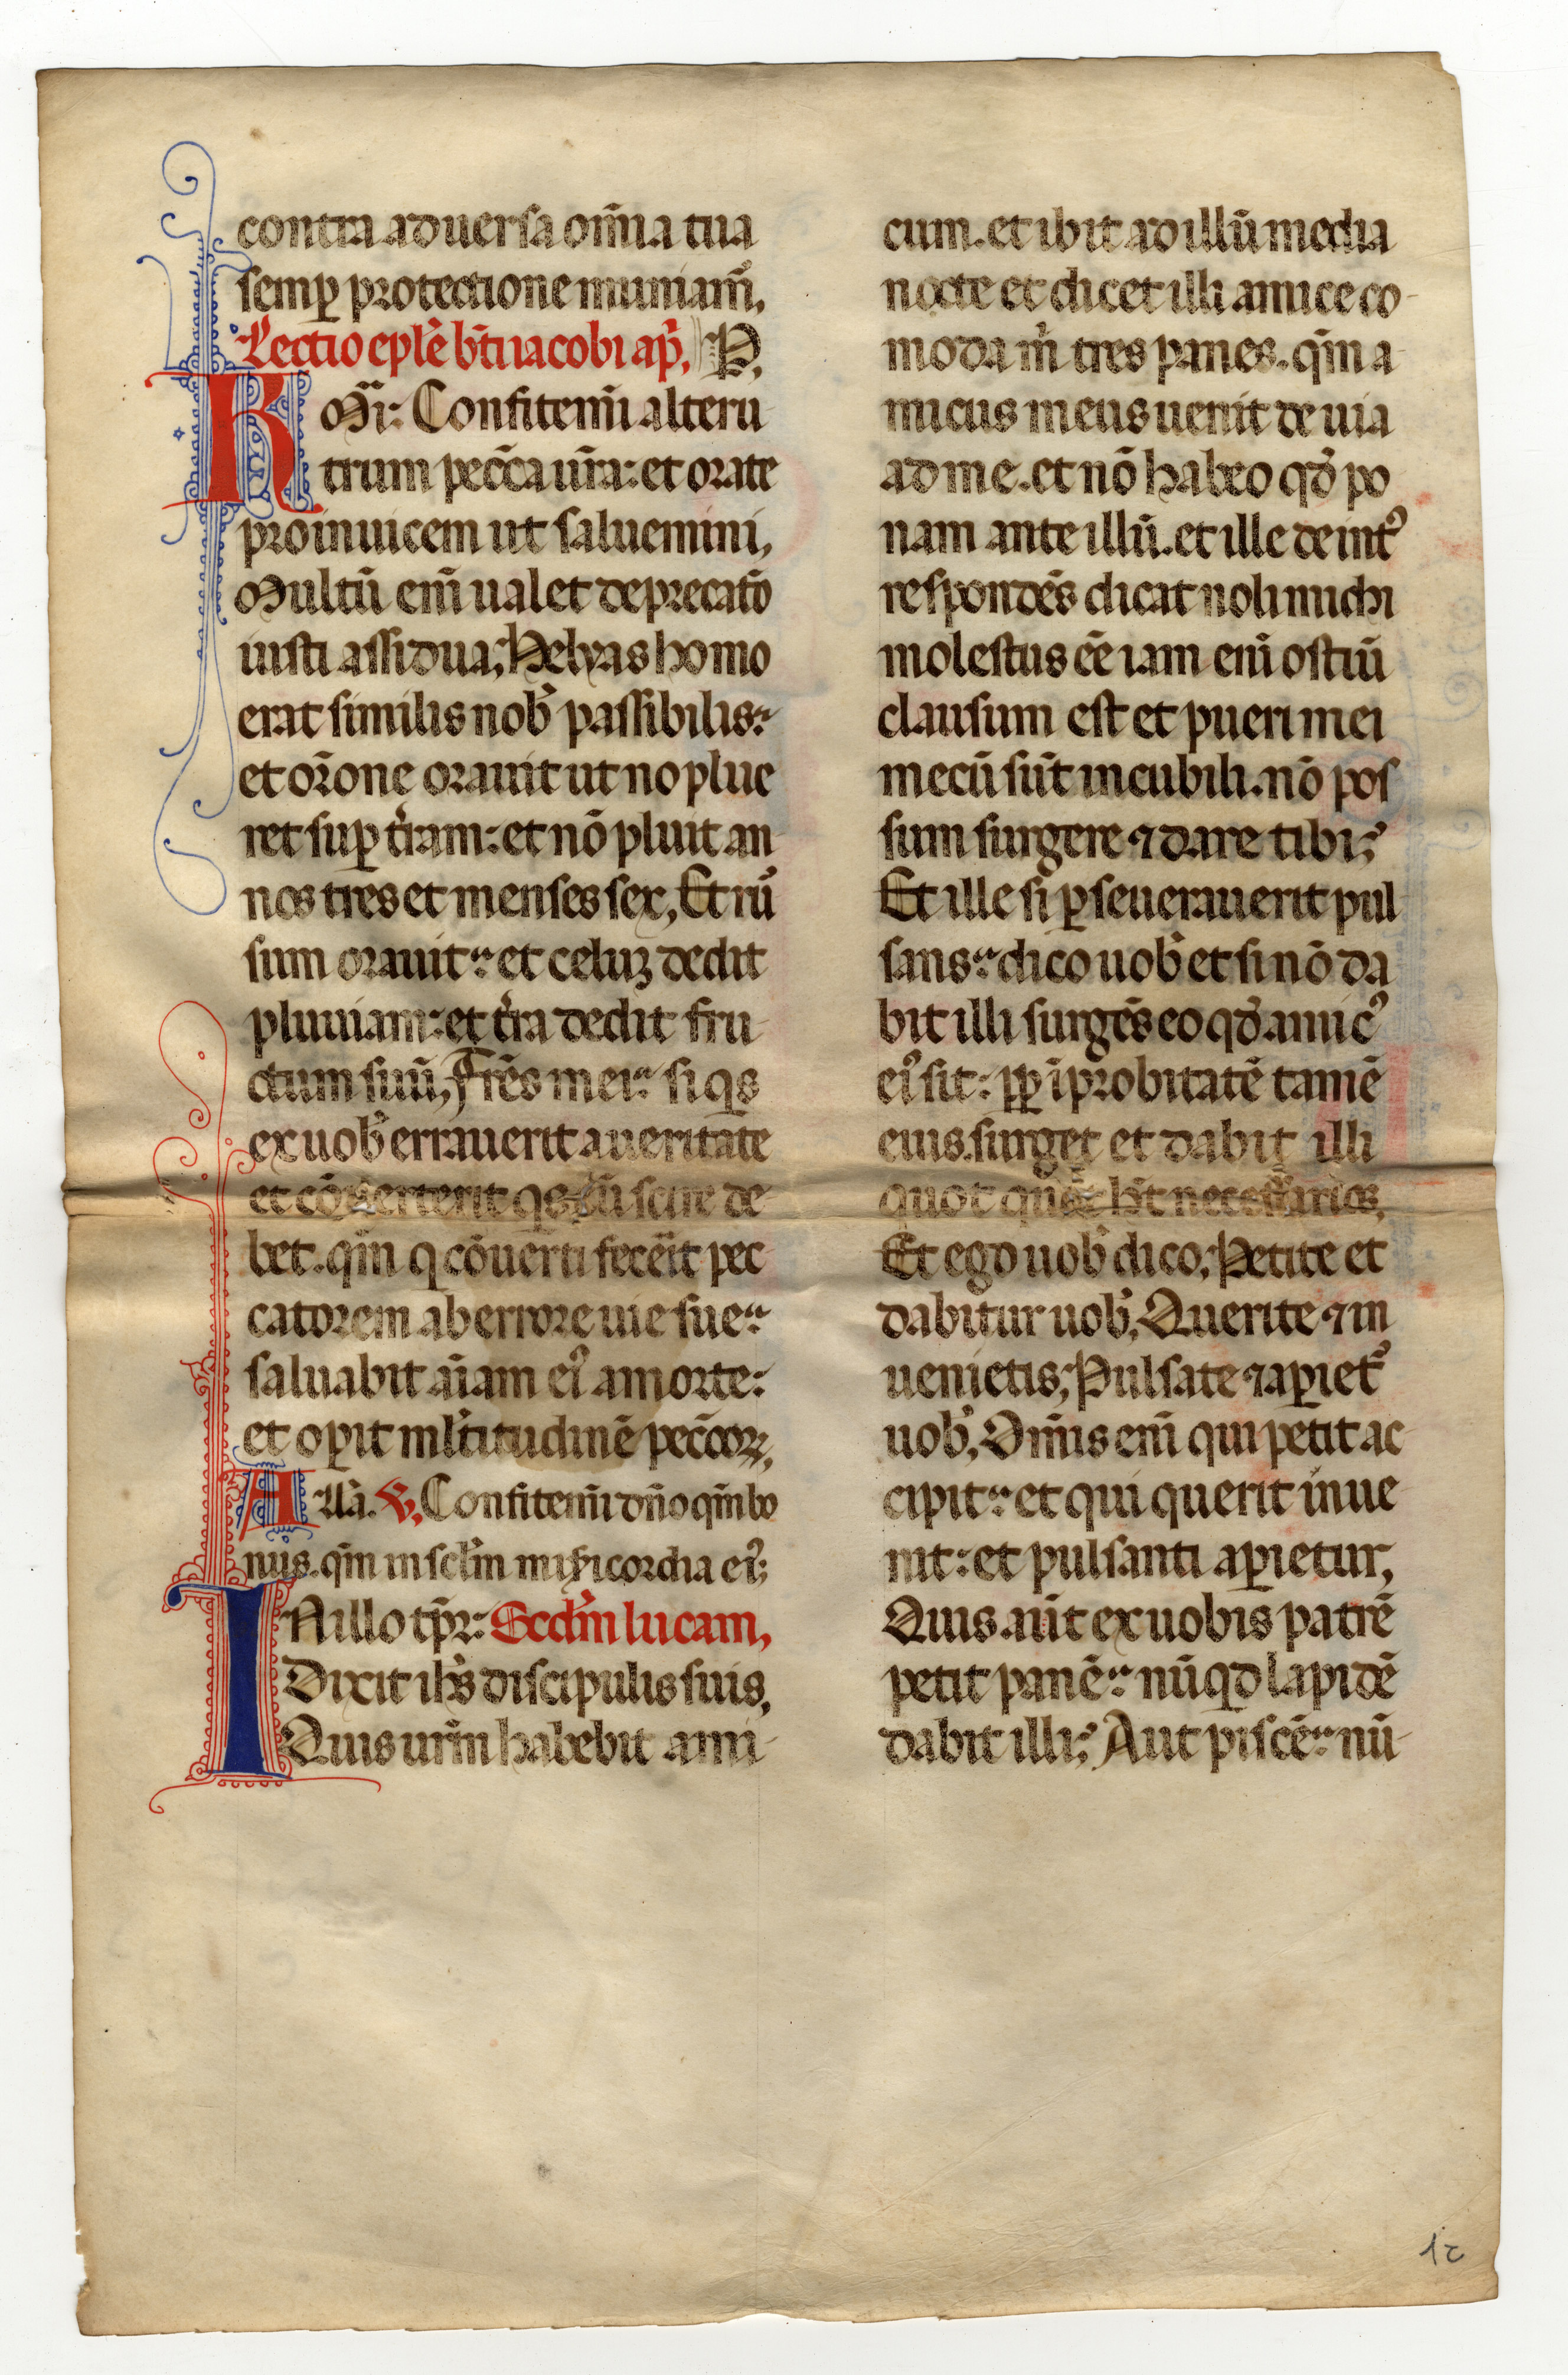 contra aduersa om̄ia tua
semꝑ protectione muniam̄,
Lectio ep̄le b̄ti iacobi ap̄, P,
K Mi: Confitem̄i alteru
trum pecc̄a ur̄a: et orate
pro inuicem ut saluemini,
Multū eni̅ ualet deprecat̄o
iusti assidua; Helyas homo
erat similis nob̾ passibilis:
et or̄one orauit ut no plue
ret suꝑ t̾ram: et nō pluit an
nos tres et menses sex, Et ru̾
sum orauit: et celuꝫ dedit
pluuiam: et t̾ra dedit fru
ctum suū, Fr̄es mei: si q̾s
ex uob̾ errauerit a ueritate
et cōuerterit q̾s eū scire de
bet. qm̄ q cōuerti fecēit pec
catorem ab errore uie sue:
saluabit ai̅am ei̾ a morte:
et oꝑit ml̾titudinē pecc̄oꝝ,
A ll̄a. V, Confitem̄i dn̄o qm̄ bo
nus. qm̄ in sc̄lm mis̄icordia ei̾;
I N illo tp̄r: Scd̄m lucam,
Dixit ih̄s discipulis suis,
Quis ur̄m habebit ami-
cum. et ibit ad illū media
nocte et dicet illi amice co-
moda m̾ tres panes. qm̄ a
micus meus uenit de uia
ad me. et nō habeo qd̾ po
nam ante illū. et ille de int̾
respondēs dicat noli michi
molestus ēe iam eni̅ ostiū
clausum est et pueri mei
mecū sūt in cubili. nō pos
sum surgere ⁊ dare tibi;
Et ille si ꝑseuerauerit pul
sans: dico uob̾ et si nō da
bit illi surgēs eo qd̾ amic̾
ei̾ sit: ꝓꝑ īprobitatē tamē
eius. surget et dabit illi
quot quot h̄t necessarios,
Et ego uob̾ dico; Petite et
dabitur uob̾, Querite ⁊ in
uenietis; Pulsate ⁊ aꝑiet̾
uob̾, Om̄is eni̅ qui petit ac
cipit: et qui querit inue
nit: et pulsanti aꝑietur,
Quis aūt ex uobis patrē
petit panē: nūqd lapidē
dabit illi; Aut piscē: nū-
12